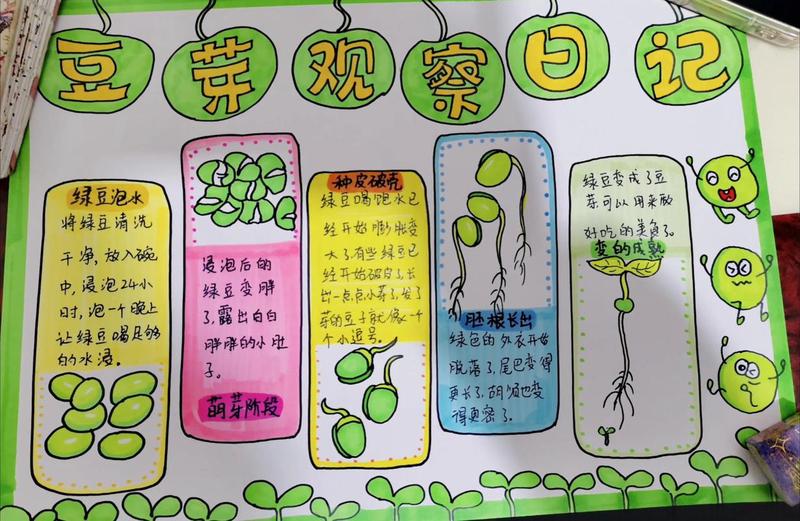 豆芽观察日记
绿豆泡水
将绿豆清洗
干净,放入碗
中,浸泡24小
时,泡一个晚上
让绿豆喝足够
的水浸。
浸泡后的
绿豆变胖
了,露出白白
胖胖的小肚
子。
萌芽阶段
种皮破壳
绿豆喝饱水已
经开始膨胀变
大了有些绿豆已
经开始破皮了,长
出一点点小芽了,发了
芽的豆子就像一个
个小逗号。
胚根长出
绿色的外衣开始
脱落了,尾巴变得
更长了,胡须也变
得更密了。
绿豆变成了豆
芽可以用来做
好吃的美食了。
变的成熟